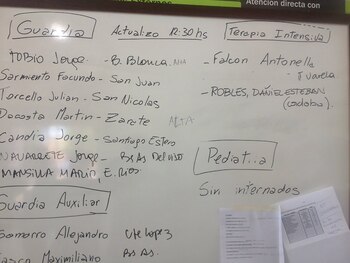 Atención directa con
Guardia Actualizo 12:30 hs
TOBIO Jorge - B. Blanca. ALTA
Sarmiento Facundo - San Juan
Torcello Julian - San Nicolas
Dacosta Martin - Zarate ALTA
Candia Jorge - Santiago Estero
NAVARRETE Jorge - Bs As
MANSILLA MARIO, E. Rios.
Guardia Auxiliar
Gamarro Alejandro Vte Lopez
Maximiliano Bs As.
Terapia Intensiva
- Falcon Antonella
Varela
- ROBLES, DANIEL ESTEBAN
(Cordoba).
Pediatria
Sin internados